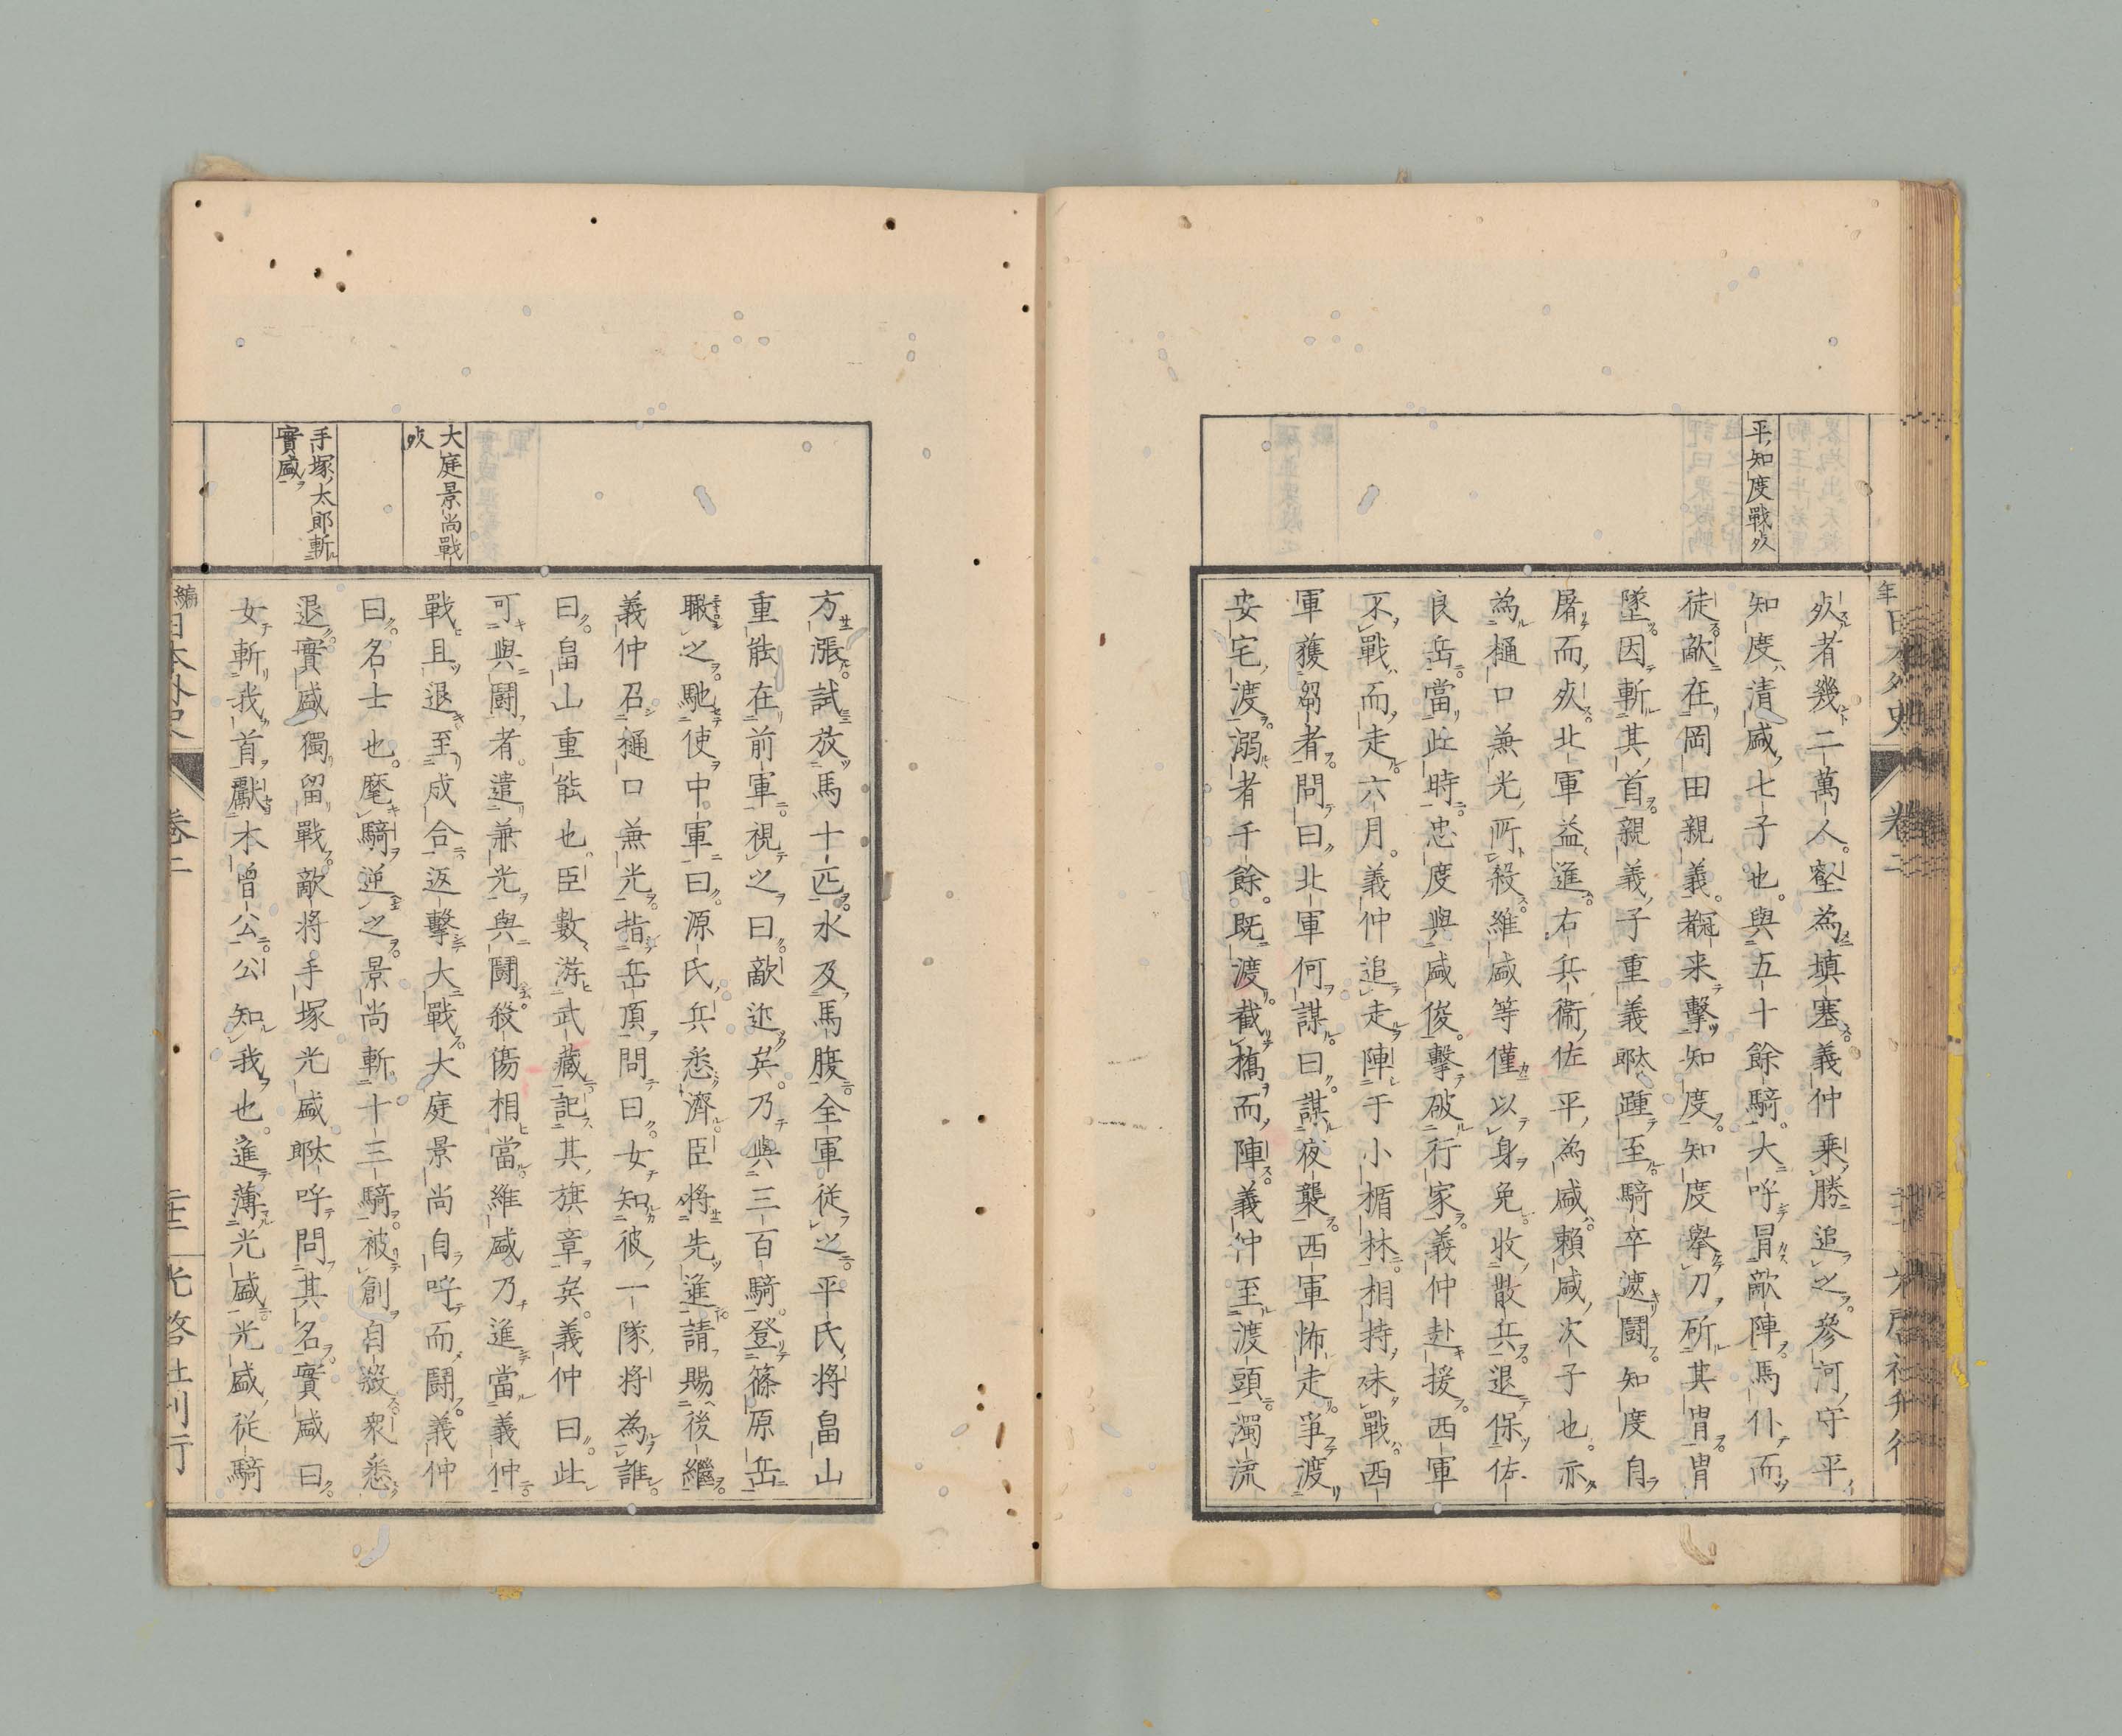 平知度戰死
死者幾二萬人壑為填塞義仲乗勝追之參河守平
知度清盛七子也與五十餘騎大呼冒敵陣馬仆而
徒敵在岡田親義覘来擊知度知度擧刀斫其冑冑
墜因斬其首親義子重義踵至騎卒遽鬪知度自
屠而死北軍益進右兵衞佐平為盛賴盛次子也亦
為樋口兼光所殺維盛等僅以身免收散兵退保佐
良岳當此時忠度與盛俊擊破行家義仲赴援西軍
不戰而走六月義仲追走陣于小楯林相持未戰西
軍獲芻者問曰北軍何謀曰謀夜襲西軍怖走爭渡
安宅渡溺者千餘既渡截橋而陣義仲至渡頭濁流
大庭景尚戰死
手塚太郎斬實盛
方漲試放馬十匹水及馬腹全軍従之平氏將畠山
重能在前軍視之曰敵迩矣乃與三百騎登篠原岳
瞰之馳使中軍曰源氏兵悉濟臣將先進請賜後繼
義仲召樋口兼光指岳頂問曰女知彼一隊將為誰
曰畠山重能也臣數游武藏記其旗章矣義仲曰此
可與鬪者遣兼光與鬪殺傷相當維盛乃進當義仲
戰且退至成合返擊大戰大庭景尚自呼而鬪義仲
曰名士也麾騎逆之景尚斬十三騎被創自殺衆悉
退實盛獨留戰敵将手塚光盛呼問其名實盛曰
女斬我首獻木曾公公知我也進薄光盛光盛従騎
編
日本外史
卷二
光啓社刊行